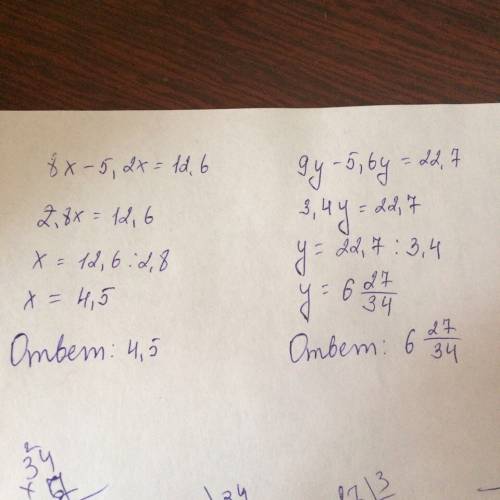 8x - 5,2x = 12,6
2,8x = 12,6
x = 12,6 : 2,8
x = 4,5
Ответ: 4,5
9y - 5,6y = 22,7
3,4y = 22,7
y = 22,7 : 3,4
y = 6 27/34
Ответ: 6 27/34
2
34